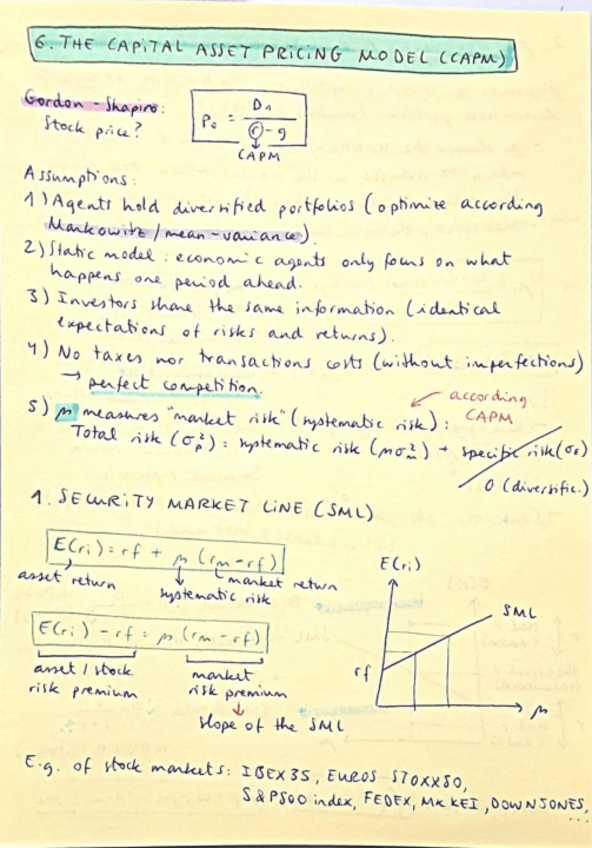 6. THE CAPITAL ASSET PRICING MODEL (CAPM)
Gordon - Shapiro:
Stock price?
P₀ = D₁ / (r - g)
CAPM
Assumptions:
1) Agents hold diversified portfolios (optimize according
Markowitz / mean-variance).
2) Static model: economic agents only focus on what
happens one period ahead.
3) Investors share the same information (identical
expectations of risks and returns).
4) No taxes nor transactions costs (without imperfections)
→ perfect competition.
5) β measures "market risk" (systematic risk):
according
CAPM
Total risk (σ²ₚ) = systematic risk (βσ²ₘ) + specific risk (σε)
0 (diversific.)
1. SECURITY MARKET LINE (SML)
E(ri) = rf + β (rm - rf)
asset return
market return
systematic risk
E(ri) - rf = β (rm - rf)
asset / stock
risk premium
market
risk premium
slope of the SML
E(ri)
SML
rf
β
E.g. of stock markets: IBEX 35, EUROS STOXX50,
S&P500 index, FEDEX, NIKKEI, DOWN JONES,
...